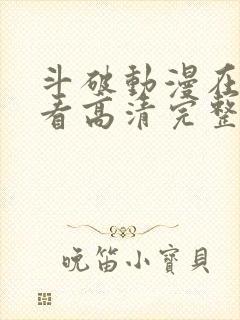 斗破動漫在
看高清完整
晚笛小寶貝